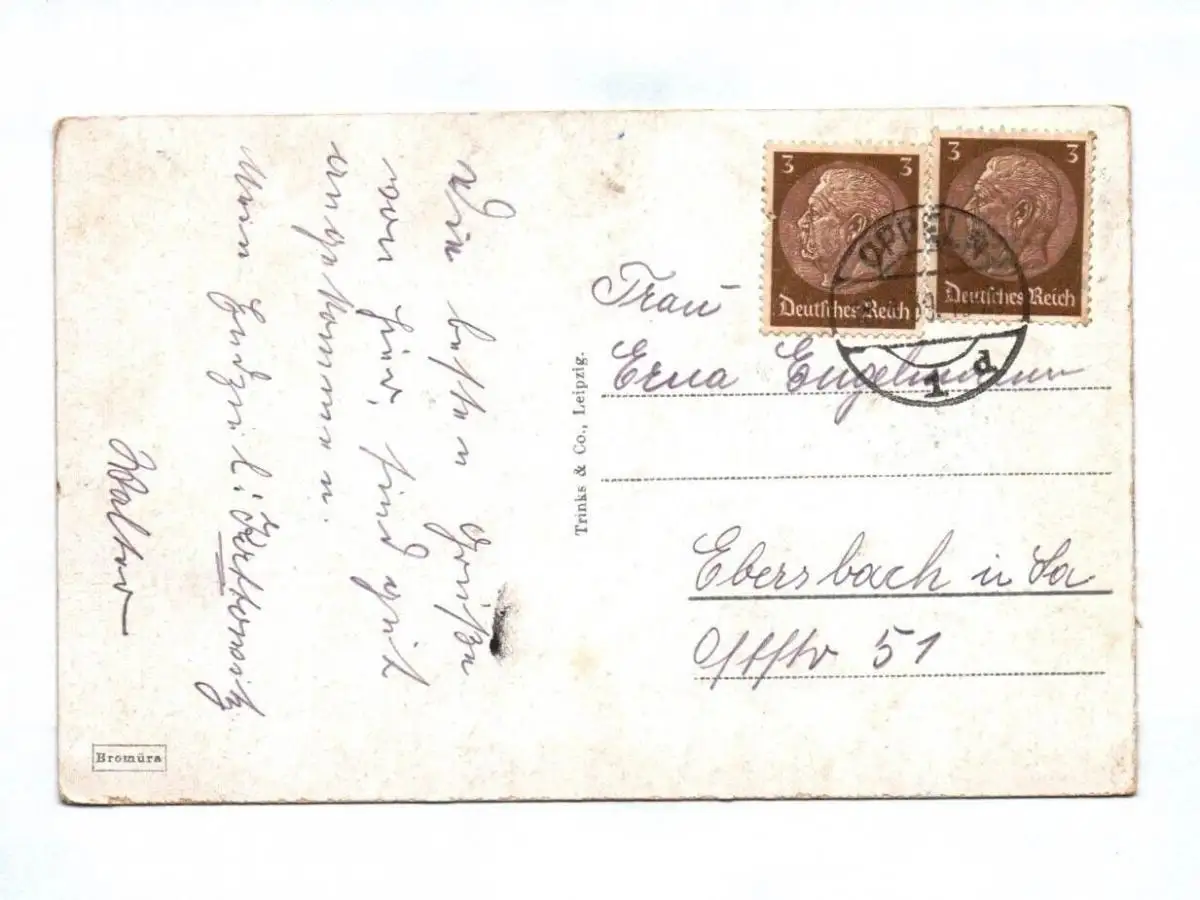 Die besten Grüße
von hier, sind gut
angekommen.
Mein Endziel: Kattowitz
Walter
Bromüra
Trinks & Co., Leipzig.
3 3
Deutsches Reich
3 3
Deutsches Reich
OPPELN
1 d
Frau
Erna Engelmann
Ebersbach i/Sa
Oststr 51